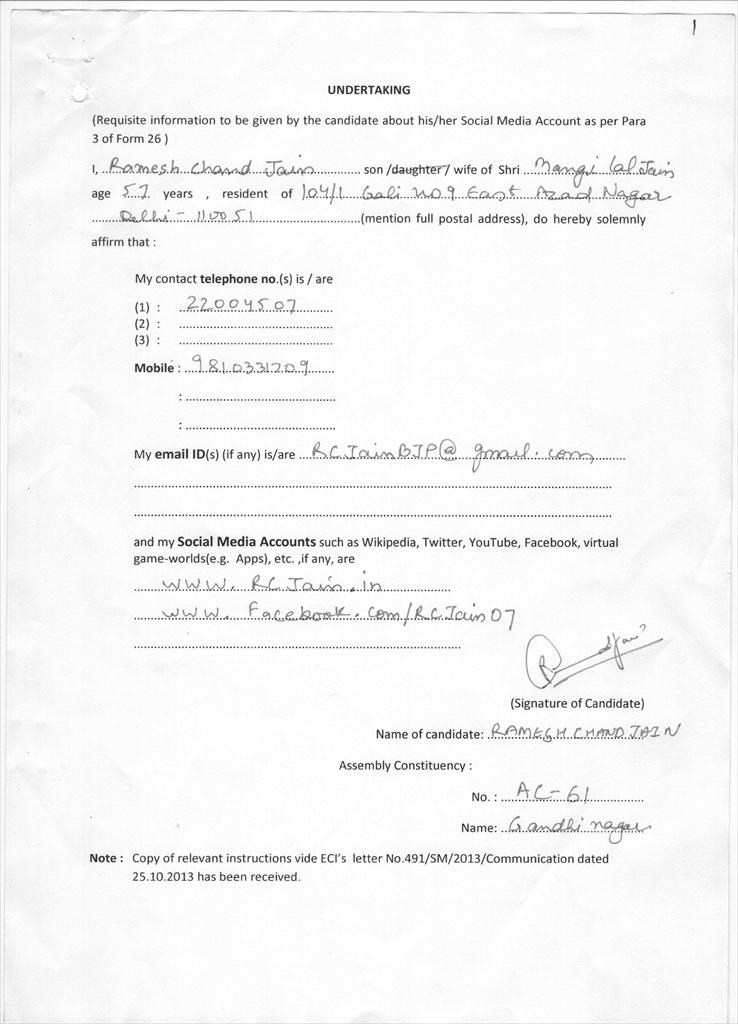 1
UNDERTAKING
(Requisite information to be given by the candidate about his/her Social Media Account as per Para
3 of Form 26 )
I, ..Ramesh Chand Jain.............. son /daughter/ wife of Shri ..Mangi Lal Jain
age 57 years , resident of 104/1 Gali no 9 East Azad Nagar
........Delhi - 110051...........................(mention full postal address), do hereby solemnly
affirm that :
My contact telephone no.(s) is / are
(1) : ..22004507..........
(2) : ............................................
(3) : ............................................
Mobile : ...9810331709........
: ............................................
: ............................................
My email ID(s) (if any) is/are ...RCJainBJP@gmail.com..........
................................................................................
................................................................................
and my Social Media Accounts such as Wikipedia, Twitter, YouTube, Facebook, virtual
game-worlds(e.g. Apps), etc. ,if any, are
........www.RCJain.in....................
........www.Facebook.com/RCJain07
................................................................................
(Signature of Candidate)
Name of candidate: RAMESH CHAND JAIN
Assembly Constituency :
No. : ....AC-61...............
Name: ..Gandhi nagar
Note : Copy of relevant instructions vide ECI's letter No.491/SM/2013/Communication dated
25.10.2013 has been received.